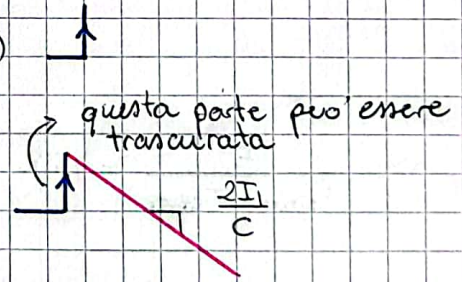 )
questa parte può essere
trascurata
2I₁
C